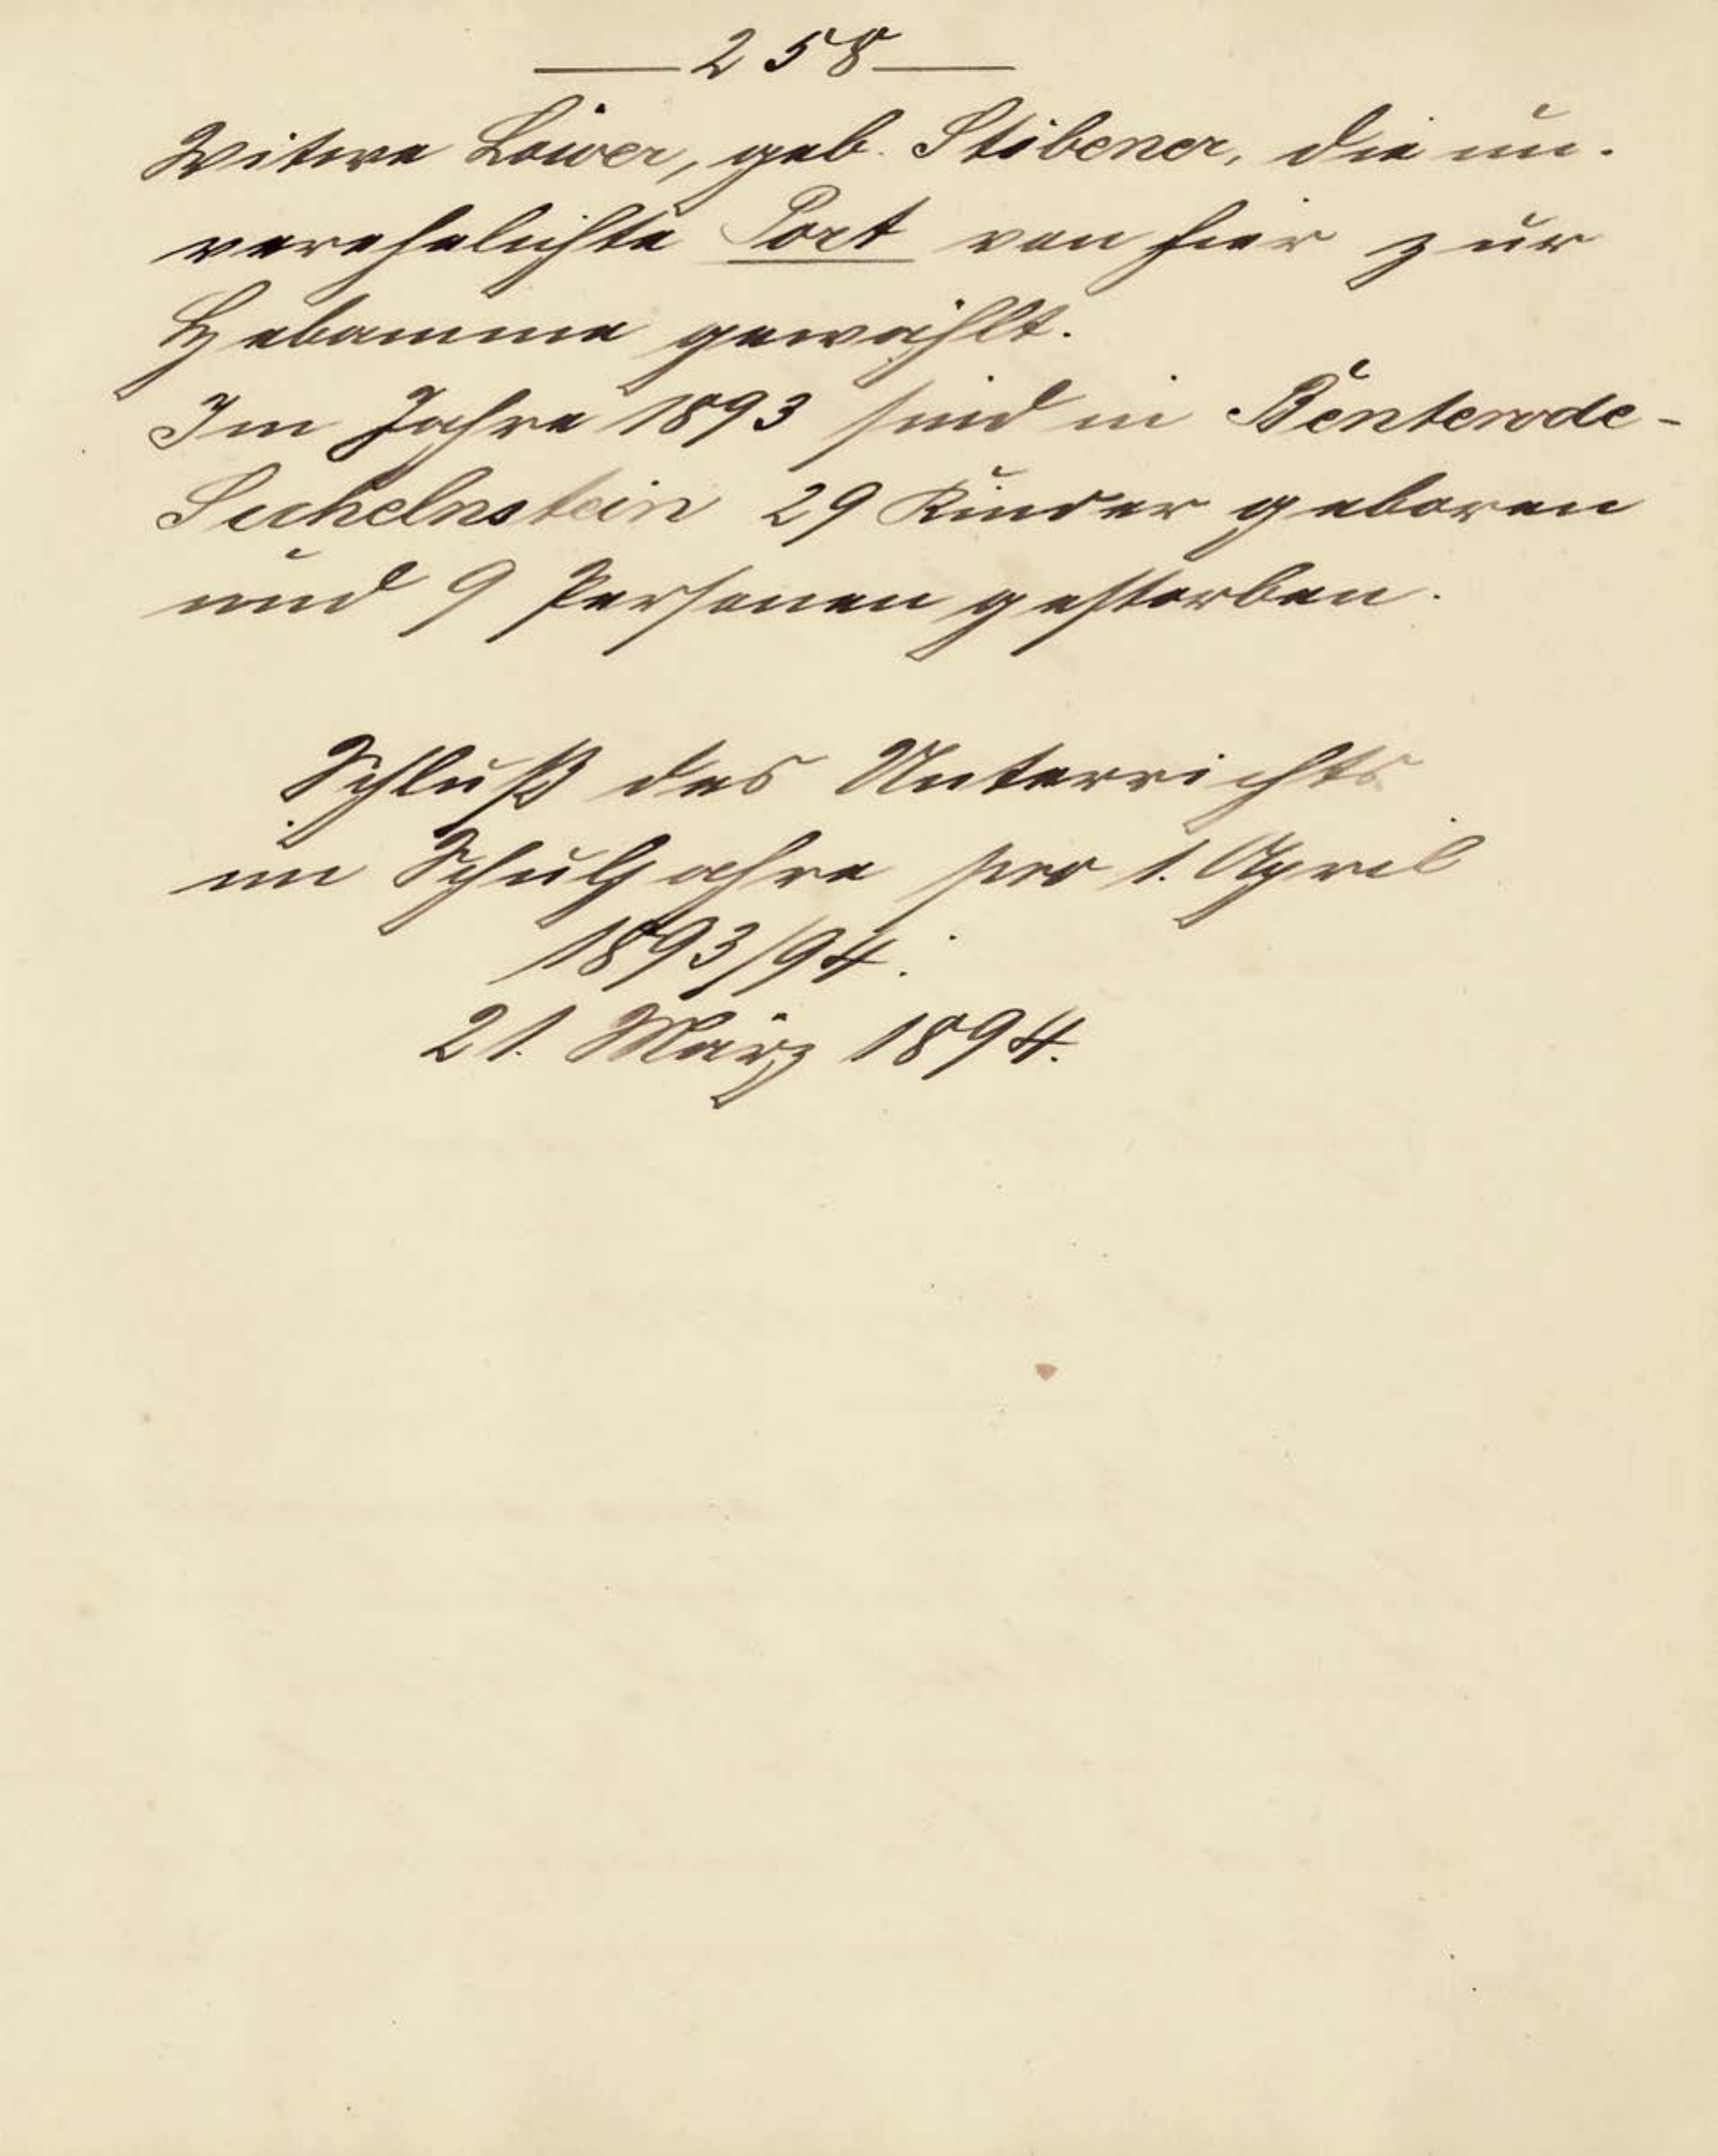 — 258 —
Witwe Löwer, geb. Stübener, die un-
verehelichte Port von hier zur
Hebamme gewählt.
Im Jahre 1893 sind in Benterode-
Sichelnstein 29 Kinder geboren
und 9 Personen gestorben.
Schluß des Unterrichts
im Schuljahre pro 1. April
1893/94.
21. März 1894.